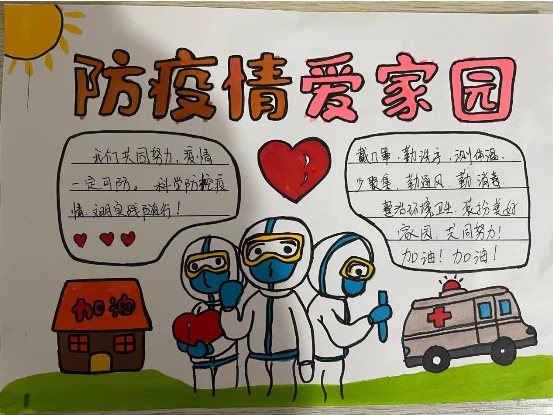 防疫情爱家园
我们共同努力,疫情
一定可防。科学防控疫
情,文明实践随行!
戴口罩、勤洗手、测体温、
少聚集、勤通风、勤消毒
整治环境卫生,装扮美好
家园,共同努力!
加油!加油!
加油